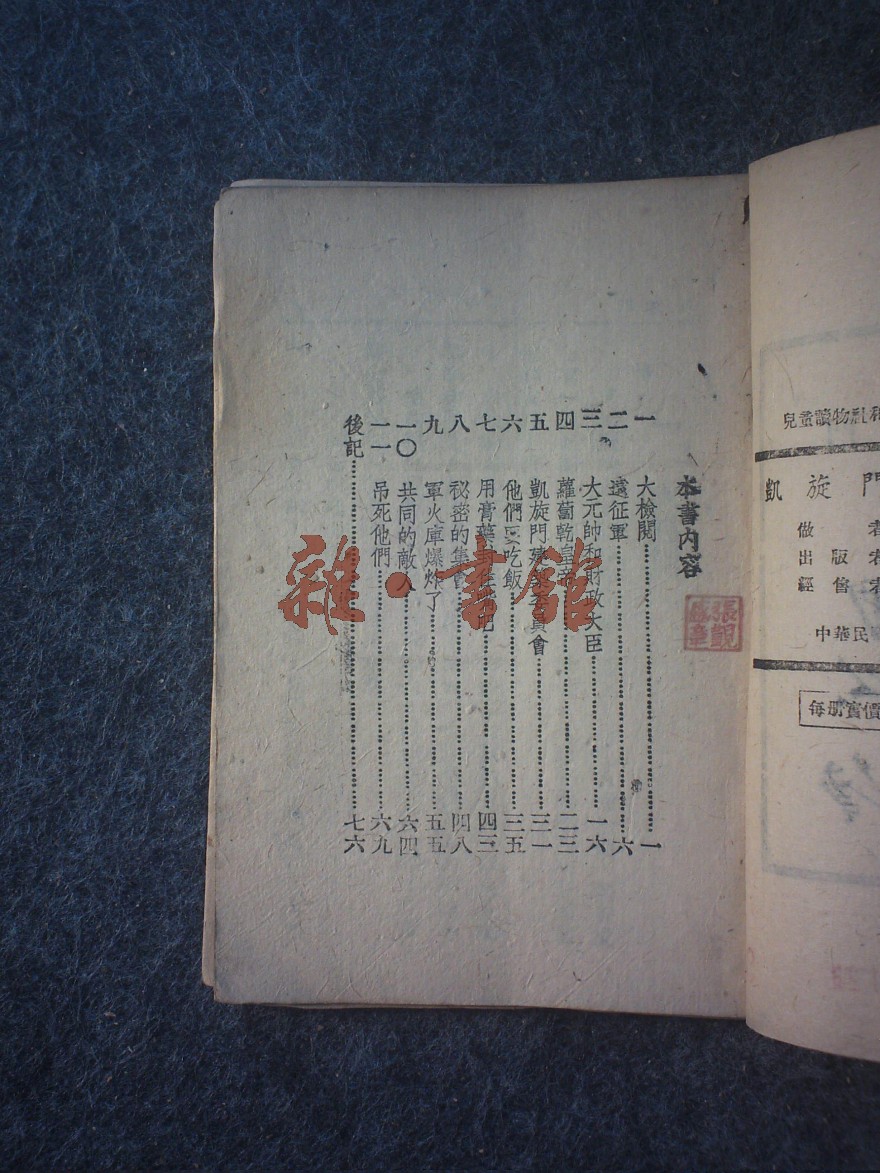 本書內容
一 大檢閱 一
二 遠征軍 六
三 大元帥和財政大臣 一六
四 蘿蔔乾皇帝 二三
五 凱旋門建築委員會 三一
六 他們要吃飯 三五
七 用膏藥 四三
八 秘密的集會 四八
九 軍火庫爆炸了 五五
一〇 共同的敵人 六四
一一 吊死他們 六九
後記 七六
雜·書館
兒童讀物社
凱旋門
做者
出版者
經售者
中華民
每册實價